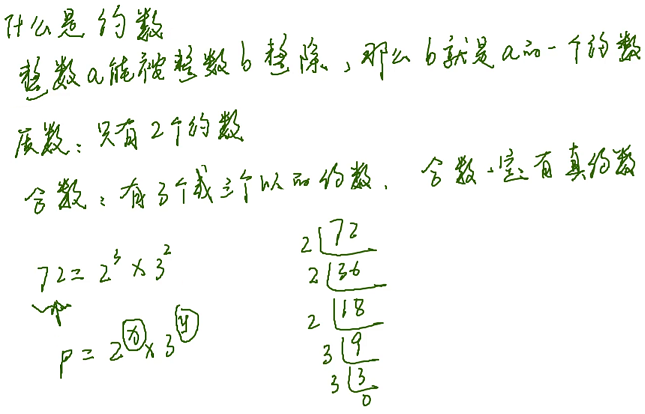 什么是约数
整数a能被整数b整除，那么b就是a的一个约数
质数：只有2个约数
合数：有3个或三个以上的约数． 合数一定有真约数
72=2³×3²
P=2ˣ×3ʸ
2 72
2 36
2 18
3 9
3 3
0